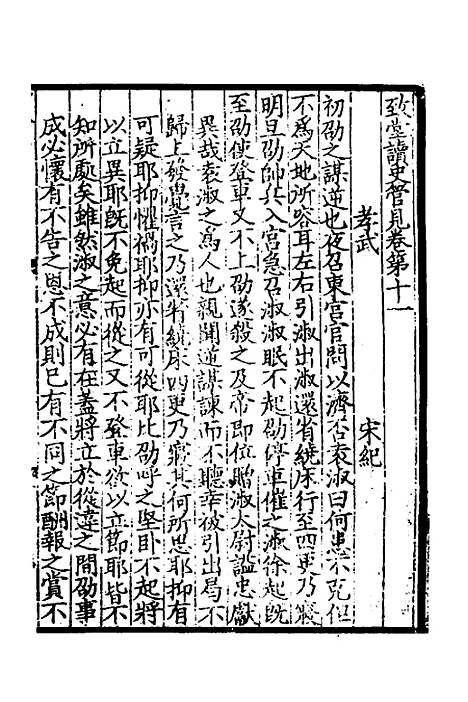 致堂讀史管見卷第十一
孝武　宋紀
初劭之謀逆也夜召東宮官問以濟否袁淑曰何患不克但
不爲天地所容耳左右引淑出淑還省繞床行至四更乃寢
明旦劭帥兵入宮急召淑淑眠不起劭停車催之淑徐起旣
至劭使登車又不上劭遂殺之及帝即位贈淑太尉謚忠獻
異哉袁淑之爲人也親聞逆謀諫而不聽幸被引出曷不
歸上發覺言之乃還省繞床四更乃寢其何所思耶抑有
可疑耶抑懼禍耶抑亦有可從耶比劭呼之堅卧不起將
以立異耶旣不免起而從之又不登車欲以立節耶皆不
知所處矣雖然淑之意必有在蓋將立於從違之間劭事
成必懷有不告之恩不成則已有不同之節酬報之賞不